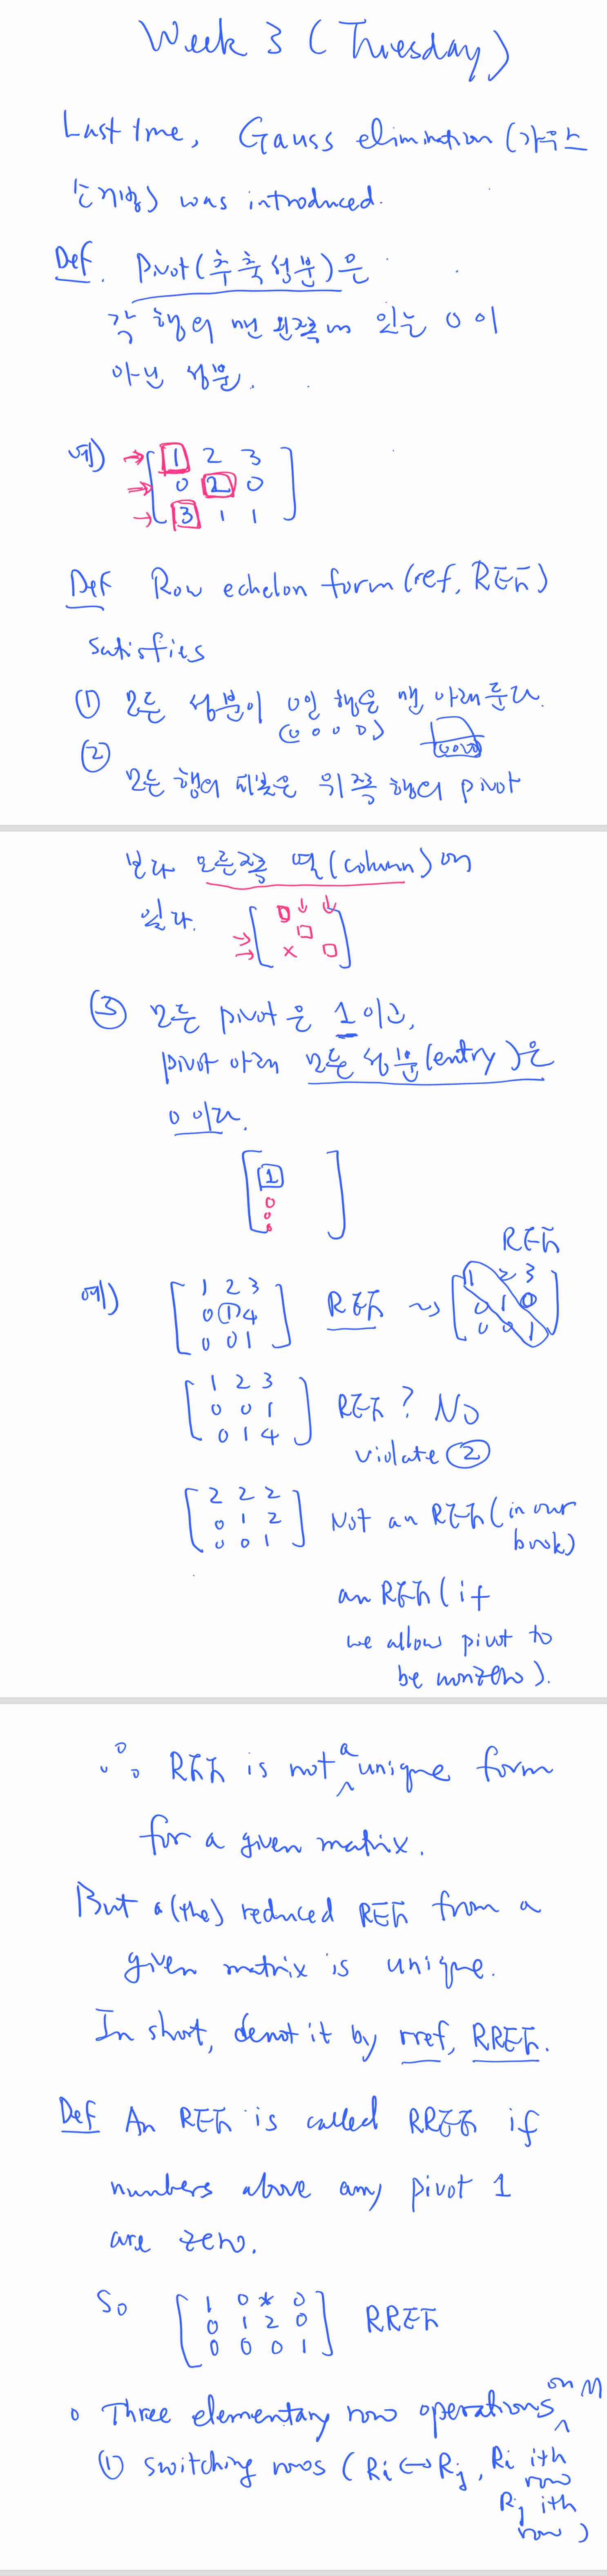 Week 3 (Tuesday)
Last time, Gauss elimination (가우스
소거법) was introduced.
Def. Pivot(추축성분)은
각 행의 맨 왼쪽에 있는 0이
아닌 성분.
예) → [ 1 2 3 ]
→ 0 2 0
→ 3 1 1
Def Row echelon form (ref, REF)
satisfies
① 모든 성분이 0인 행은 맨 아래 둔다.
(0 0 0 0)
②
모든 행의 피봇은 위쪽 행의 pivot
보다 오른쪽 열(column)에
있다.
×
③ 모든 pivot은 1이고,
pivot 아래 모든 성분(entry)은
0이다.
1
0
0
0
REF
예) [ 1 2 3 ] REF ⇝ [ 1 2 3 ]
0 1 4 0 1 0
0 0 1 0 0 1
[ 1 2 3 ]
0 0 1 REF? No
0 1 4
violate ②
[ 2 2 2 ]
0 1 2 Not an REF (in our
0 0 1 book)
an REF (if
we allow pivot to
be nonzero).
∴ REF is not a unique form
for a given matrix.
But a(the) reduced REF from a
given matrix is unique.
In short, denot it by rref, RREF.
Def An REF is called RREF if
numbers above any pivot 1
are zero.
So [ 1 0 * 0 ]
0 1 2 0 RREF
0 0 0 1
o Three elementary row operations on M
① switching rows (Ri ↔ Rj, Ri ith
row
Rj ith
row)